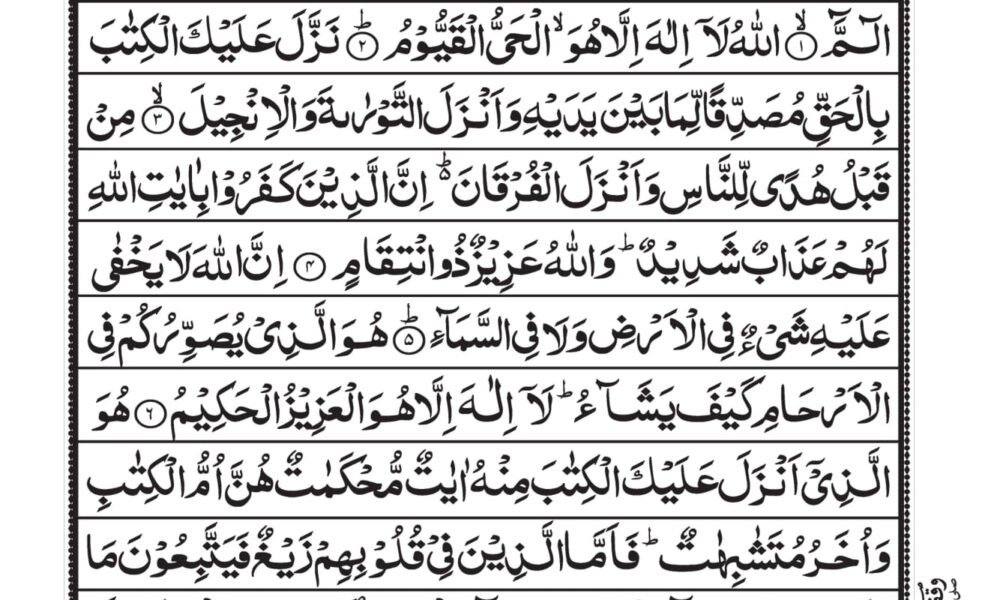 الٓـمّٓ ۙ﴿۱﴾ اللّٰهُ لَاۤ اِلٰهَ اِلَّا هُوَ ۙ الۡحَىُّ الۡقَيُّوۡمُ ؕ﴿۲﴾ نَزَّلَ عَلَيۡكَ الۡكِتٰبَ
بِالۡحَقِّ مُصَدِّقًا لِّمَا بَيۡنَ يَدَيۡهِ وَاَنۡزَلَ التَّوۡرٰٮةَ وَالۡاِنۡجِيۡلَ ۙ﴿۳﴾ مِنۡ
قَبۡلُ هُدًى لِّلنَّاسِ وَاَنۡزَلَ الۡفُرۡقَانَ ۵ؕ اِنَّ الَّذِيۡنَ كَفَرُوۡا بِاٰيٰتِ اللّٰهِ
لَهُمۡ عَذَابٌ شَدِيۡدٌ ؕ وَاللّٰهُ عَزِيۡزٌ ذُو انۡتِقَامٍ ﴿۴﴾ اِنَّ اللّٰهَ لَا يَخۡفٰى
عَلَيۡهِ شَىۡءٌ فِى الۡاَرۡضِ وَلَا فِى السَّمَآءِ ؕ﴿۵﴾ هُوَ الَّذِىۡ يُصَوِّرُكُمۡ فِى
الۡاَرۡحَامِ كَيۡفَ يَشَآءُ ؕ لَاۤ اِلٰهَ اِلَّا هُوَ الۡعَزِيۡزُ الۡحَكِيۡمُ ﴿۶﴾ هُوَ
الَّذِىۡۤ اَنۡزَلَ عَلَيۡكَ الۡكِتٰبَ مِنۡهُ اٰيٰتٌ مُّحۡكَمٰتٌ هُنَّ اُمُّ الۡكِتٰبِ
وَاُخَرُ مُتَشٰبِهٰتٌ ؕ فَاَمَّا الَّذِيۡنَ فِىۡ قُلُوۡبِهِمۡ زَيۡغٌ فَيَتَّبِعُوۡنَ مَا